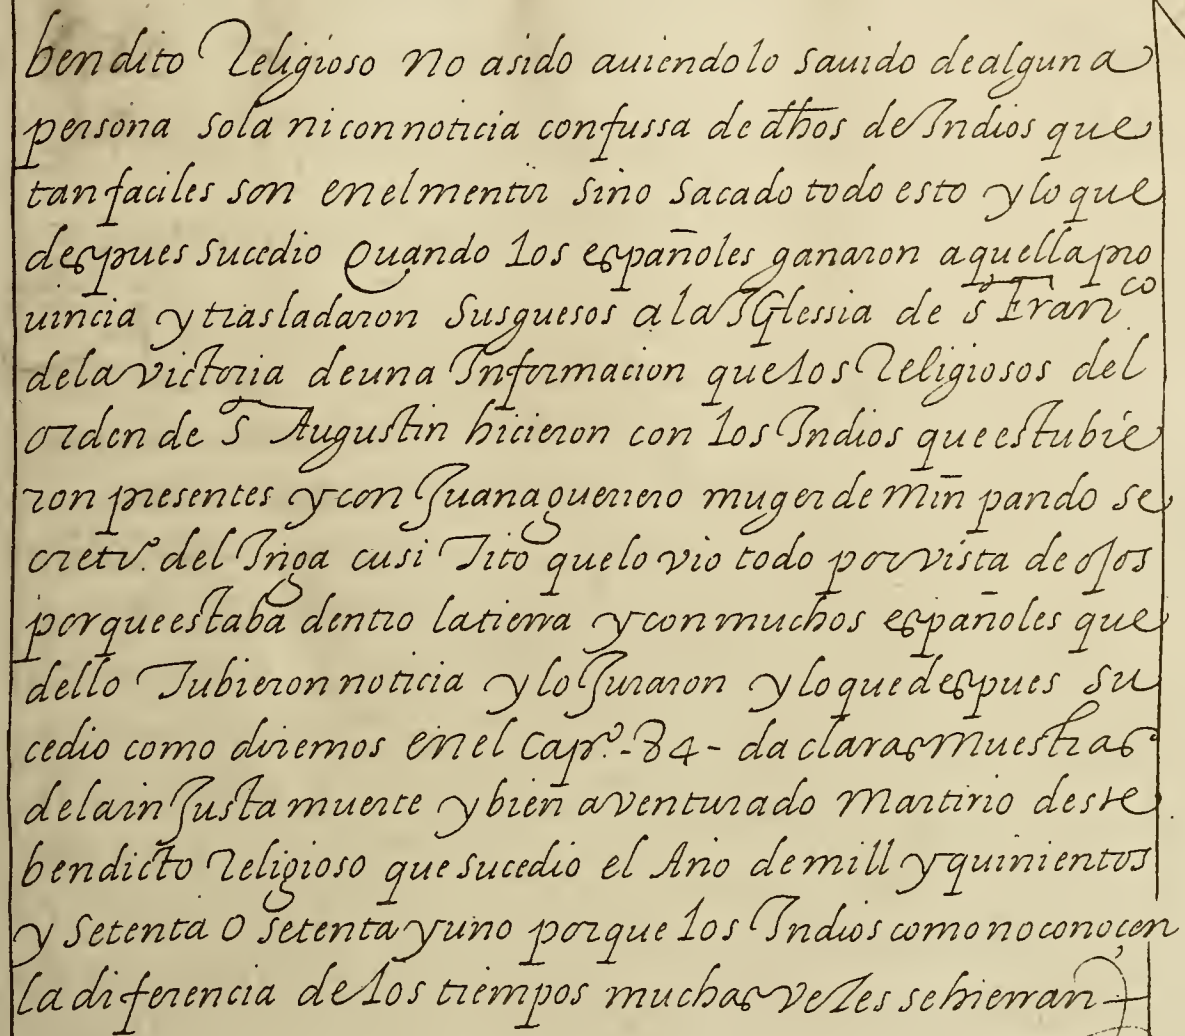 bendito Religioso no a sido auiendolo sauido de alguna
persona sola ni con noticia confussa de dhos de Indios que
tan faciles son en el mentir sino sacado todo esto y lo que
despues sucedio quando los españoles ganaron aquella pro
uincia y trasladaron sus guesos a la Iglessia de s Fran^co
de la victoria de una Informacion que los Religiosos del
orden de S Augustin hicieron con los Indios que estubie
ron presentes y con Juana guerrero muger de Min pando se
cretrº. del Inga cusi Tito que lo vio todo por vista de ojos
porque estaba dentro la tierra y con muchos españoles que
dello Tubieron noticia y lo Juraron y lo que despues su
cedio como diremos en el Capº.-84- da claras muestras
de la inJusta muerte y bien aventurado Martirio deste
bendicto Religioso que sucedio el Año de mill y quinientos
y setenta o setenta y uno porque los Indios como no conocen
la diferencia de los tiempos muchas vezes se hierran